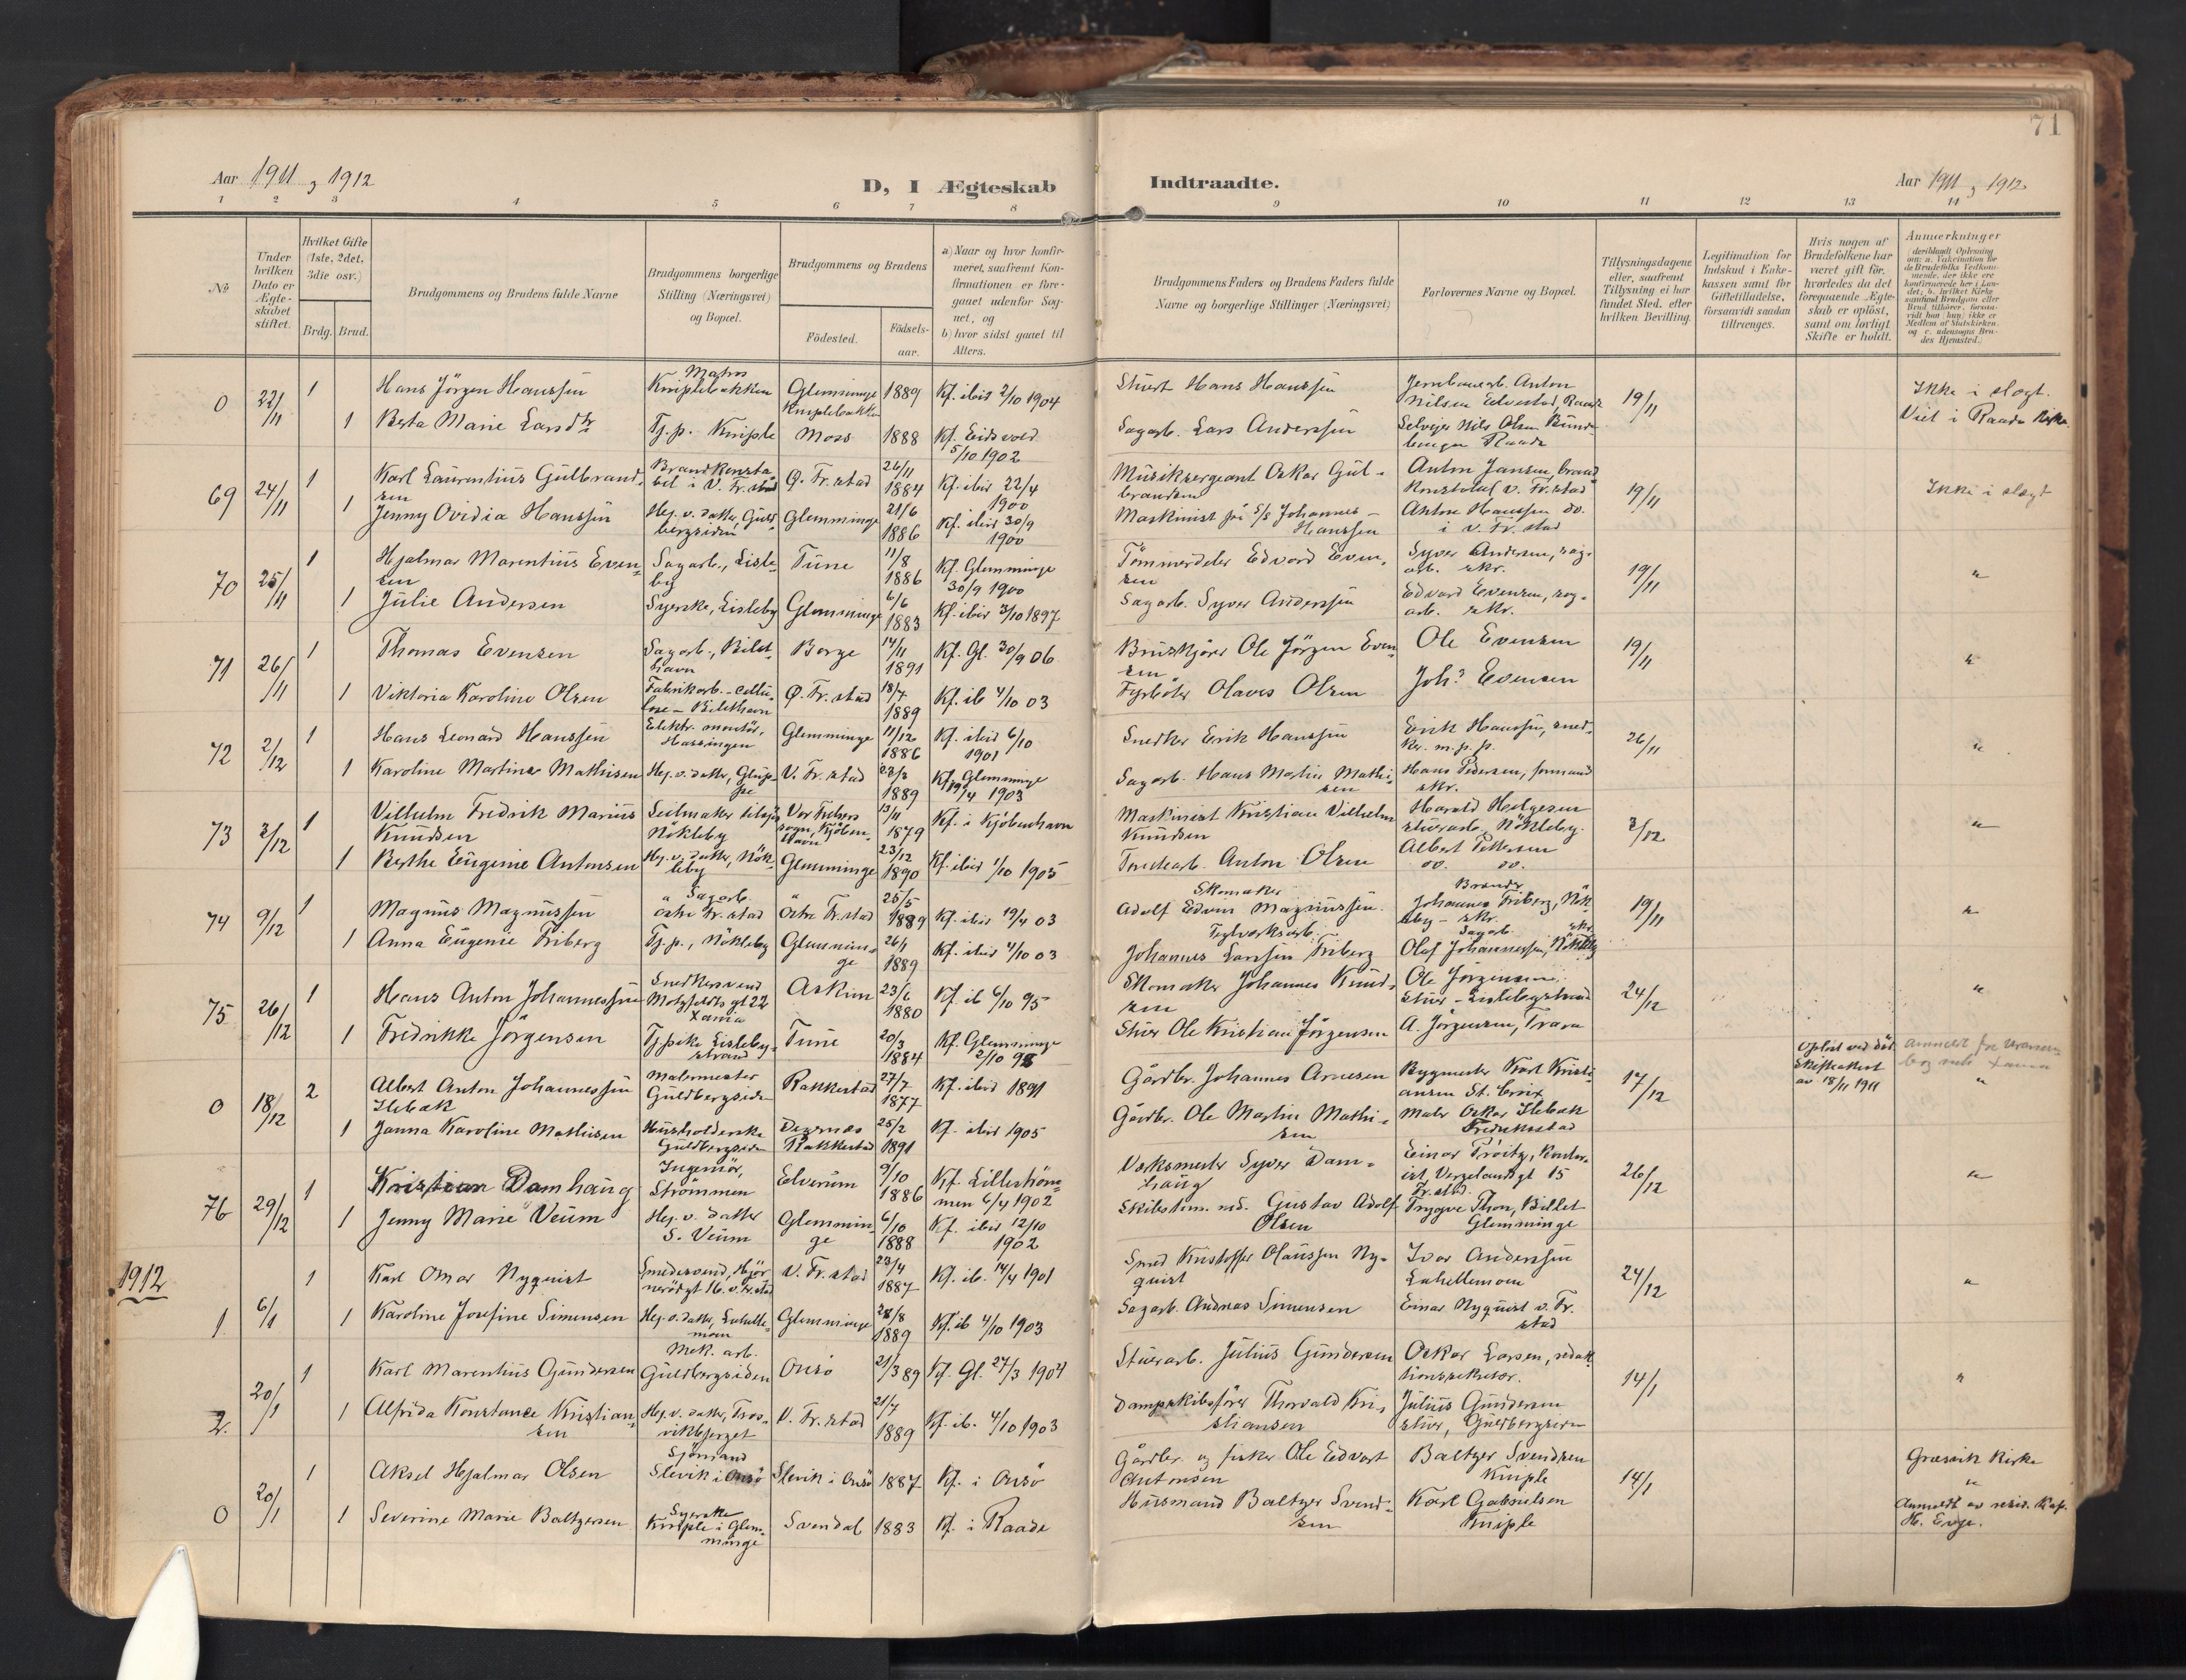 71
Aar 1911 og 1912
D, I Ægteskab
Indtraadte.
Aar 1911 og 1912
1 2 3 4 5 6 7 8 9 10 11 12 13 14
No
Under hvilken Dato er Ægteskabet stiftet.
Hvilket Gifte (1ste, 2det, 3die osv.)
Brdg. Brud.
Brudgommens og Brudens fulde Navne
Brudgommens borgerlige Stilling (Næringsvei) og Bopæl.
Brudgommens og Brudens
Födested.
Födselsaar.
a) Naar og hvor konfirmeret, saafremt Konfirmationen er foregaaet udenfor Sognet, og
b) hvor sidst gaaet til Alters.
Brudgommens Faders og Brudens Faders fulde Navne og borgerlige Stillinger (Næringsvei)
Forlovernes Navne og Bopæl.
Tillysningsdagene eller, saafremt Tillysning ei har fundet Sted, efter hvilken Bevilling.
Legitimation for Indskud i Enkekassen samt for Giftetilladelse, forsaavidt saadan tiltrænges.
Hvis nogen af Brudefolkene har været gift för, hvorledes da det foregaaende Ægteskab er oplöst, samt om lovligt Skifte er holdt.
Anmerkninger
0 22/11 1 Hans Jörgen Hanssen Matros Kniplebakken Glemminge Kniplebakken 1889 Kf. ibid 2/10 1904 Stuert Hans Hanssen Jernbanearb. Anton Nilsen 19/11 Ikke i slegt.
1 Berta Marie Larsdtr Tj.p. Kniple Moss 1888 Kf. Eidsvold 5/10 1902 Sagarb. Lars Anderssen Selveier Nils Olsen Raade Viet i Raade Kirke
69 24/11 1 Karl Laurentius Gulbrandsen Brandkonstabel i V. Fr.stad Ø. Fr.stad 26/11 1884 Kf. ibid 22/4 1900 Musiksergeant Oskar Gulbrandsen Anton Jansen, brandkonstabel v. Fr.stad 19/11 Ikke i slegt
1 Jenny Ovidia Hanssen Hej. v. datter, Guldbergsiden Glemminge 21/6 1886 Kf. ibid 30/9 1900 Maskinist på S/S Johannes - Hanssen Anton Hanssen do. i V. Fr.stad
70 25/11 1 Hjalmar Marentius Evensen Sagarb., Lisleby Tune 11/8 1886 Kf. Glemminge 30/9 1900 Tömmerdeler Edvard Evensen Syver Andersen, sagarb. skr. 19/11 "
1 Julie Andersen Syerske, Lisleby Glemminge 6/6 1883 Kf. ibid 3/10 1897 Sagarb. Syver Anderssen Edvard Evensen, sagarb. skr.
71 26/11 1 Thomas Evensen Sagarb., Bilethavn Borge 14/11 1891 Kf. Gl. 30/9 06 Ole Jörgen Evensen Ole Evensen 19/11 "
1 Viktoria Karoline Olsen Fabrikarb. - Cellulose - Bilethavn Ø. Fr.stad 18/4 1889 Kf. ib 4/10 03 Fyrböter Olaves Olsen Joh? Evensen
72 2/12 1 Hans Leonard Hanssen Elektr. montör, Hassingen Glemminge 11/12 1886 Kf. ibid 6/10 1901 Snedker Erik Hanssen Erik Hanssen, snedker. m.p.p. 26/11 "
1 Karoline Martine Mathisen Hej. v. datter, Gluppe V. Fr.stad 22/2 1889 Kf. Glemminge 19/4 1903 Sagarb. Hans Martin Mathisen Hans Pedersen, formand skr.
73 2/12 1 Vilhelm Fredrik Marius Knudsen Seilmaker Nökleby Vor Frelsers sogn, Kjöbenhavn 13/11 1879 Kf. i Kjöbenhavn Maskinist Kristian Vilhelm Knudsen Harald Helgesen stuerarb., Nökleby. 3/12 "
1 Berthe Eugenie Antonsen Hej. v. datter, Nökleby Glemminge 23/12 1890 Kf. ibid 1/10 1905 Anton Olsen Albert Pettersen do. do.
74 9/12 1 Magnus Magnussen Sagarb. östre Fr.stad Östre Fr.stad 25/5 1889 Kf. ibid 19/4 03 Skomaker Adolf Edvin Magnussen. Johannes Friberg, Nökleby - skr. 19/11 "
1 Anna Eugenie Friberg Tj.p., Nökleby Glemminge 26/1 1889 Kf. ibid 4/10 03 Teglverksarb. Johannes Larssen Friberg Sagarb. Olaf Johannessen, Nökleby skr.
75 26/12 1 Hans Anton Johannessen Snedkersvend Motzfeldts gt 22 Xania Askim 23/6 1880 Kf. ib 6/10 95 Skomaker Johannes Knudsen Ole Jörgensen, stuer - Lislebystrand 24/12 "
1 Fredrikke Jörgensen Tjpike Lislebystrand Tune 20/3 1884 Kf. Glemminge 2/10 98 Stuer Ole Kristian Jörgensen A. Jörgensen, Trara
0 18/12 2 Albert Anton Johannessen Ilebæk Malermester Guldbergsiden Rakkestad 27/7 1877 Kf. ibid 1891 Gårdbr. Johannes Arnesen Bygmester Karl Kristiansen St. Croix 17/12 Oplöst ved död Skifteattest av 18/11 1911 "
1 Janna Karoline Mathisen Husholderske Guldbergsiden Degernes Rakkestad 25/2 1891 Kf. ibid 1905 Gårdbr. Ole Martin Mathisen Maler Oskar Ilebæk Fredriksstad
76 29/12 1 Kristian Damhaug Ingeniör, Strömmen Elverum 9/10 1886 Kf. Lilleströmmen 6/4 1902 Verksmester Syver Damhaug Einar Tröite, Kontorist, Vergelandsgt 15 Fr.stad. 26/12 "
1 Jenny Marie Veum Hej. v. datter S. Veum Glemminge 6/10 1888 Kf. ibid 12/10 1902 Skibstöm. md. Gustav Adolf Olsen Trygve Thon, Glemminge
1912
1 6/1 1 Karl Omar Nyquist Smedsvend, V. Fr.stad 23/4 1887 Kf. ib. 14/4 1901 Smed Kristoffer Olaussen Nyquist Ivar Anderssen Lahellemoen 24/12 "
1 Karoline Josefine Simensen Hej. v. datter, Lahellemoen Glemminge 28/8 1889 Kf. ib 4/10 1903 Sagarb. Andreas Simensen Einar Nyquist v. Fr.stad
2. 20/1 1 Karl Marentius Gundersen Mek. arb. Guldbergsiden Onsö 21/3 89 Kf. Gl. 27/3 1904 Stuerarb. Julius Gundersen Oskar Larsen, redaktionssekretær. 14/1 "
1 Alfrida Konstance Kristiansen Hej. v. datter, Trosvikberget V. Fr.stad 21/7 1889 Kf. ib. 4/10 1903 Dampskibsförer Thorvald Kristiansen Julius Gundersen stuer, Guldbergsiden
0 20/1 1 Aksel Hjalmar Olsen Sjömand Slevik i Onsö Slevik i Onsö 1887 Kf. i Onsö Gårdbr. og fisker Ole Edvart Antonsen Baltzer Svendsen Kniple 14/1 Græsvik Kirke "
1 Severine Marie Baltzersen Syerske Kniple i Glemminge Svendal 1883 Kf. i Raade Husmand Baltzer Svendsen Karl Gabrielsen Kniple Anmeldt av resid. Kap. H. Evje.